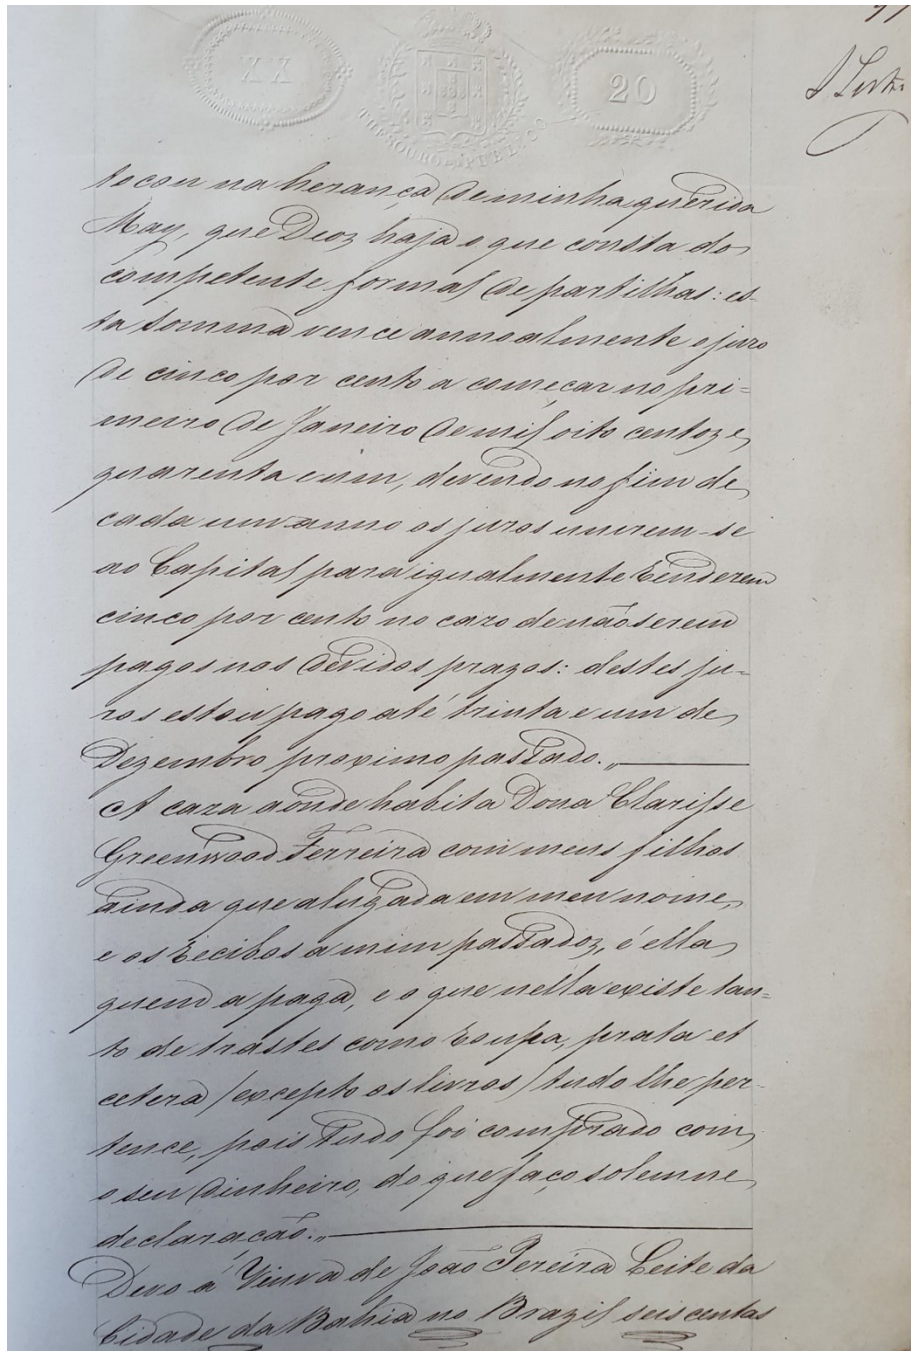 XX
THESOURO PUBLICO
20
tocou na herança de minha querida
May, que Deoz haja o que consta do
competente formal de partilhas: es-
ta somma vence annoalmente o juro
de cinco por cento a começar no pri=
meiro de Janeiro de mil oito centoz e
quarenta e um, devendo no fim de
cada um anno os juros unirem-se
ao Capital para igualmente renderem
cinco por cento no cazo de não serem
pagos nos devidos prazos: destes ju-
ros estou pago até trinta e um de
Dezembro proximo passado.
A caza aonde habita Dona Clarisse
Greenwood Ferreira com meus filhos
ainda que alugada em meu nome,
e os recibos a mim passadoz, é ella
quem a paga, e o que nella existe tan=
to de trastes como roupa, prata et
cetera (excepto os livros) tudo lhe per-
tence, pois tudo foi comprado com
o seu dinheiro, do que faço solemne
declaração.
Devo á Viuva de João Pereira Leite da
Cidade da Bahia no Brazil seis centos